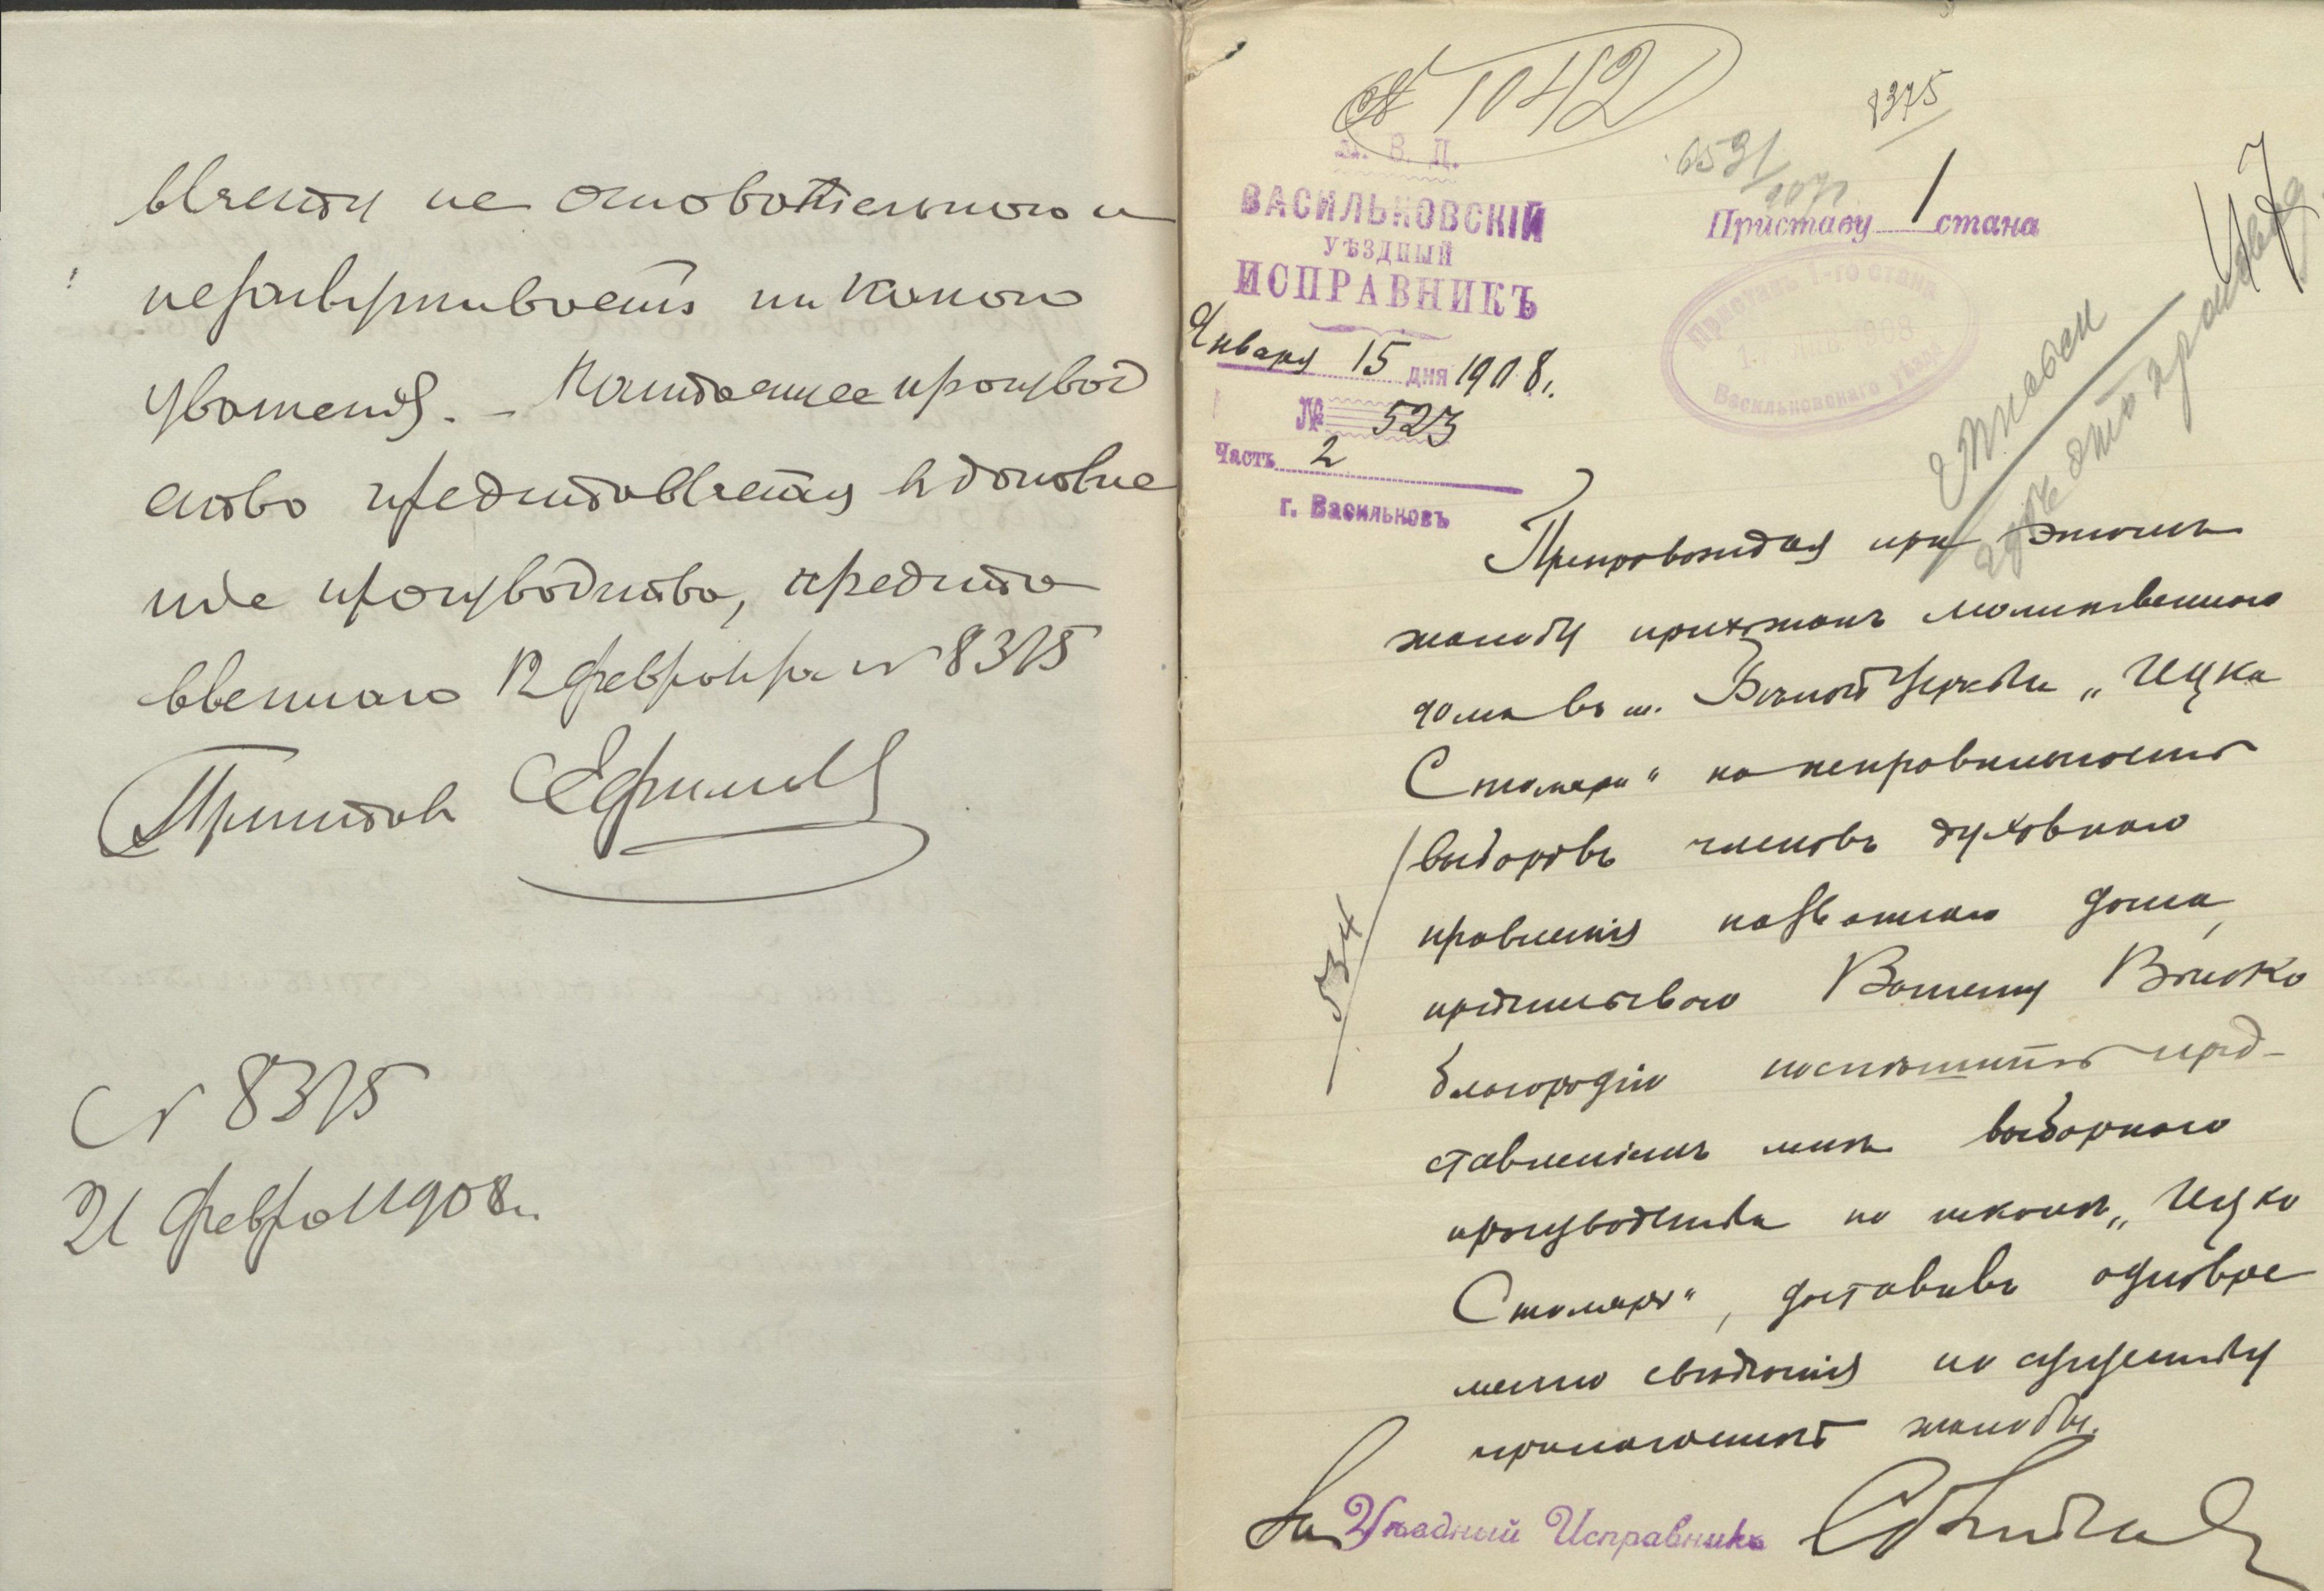 неоснователъною и
незаслуживаетъ ни какого
уваженія. – Настоящее производ
ство представляется в дополне
ніе производства, предста
вленнаго 12 февраля № 8315
Приставъ Ефимов
№ 8315
21 февраля 1908 г.
№ 1042
8375
М. В. Д.
ВАСИЛЬКОВСКІЙ
УѢЗДНЫЙ
ИСПРАВНИКЪ
Января 15 дня 1908 г.
№ 523
Часть 2
г. Васильковъ
Приставу 1 стана
Приставъ 1-го стана
Васильковскаго уѣзда
47
Препровождая при этомъ
жалобу прихожанъ молитвеннаго
дома въ м. Бѣлой Церкви „Ицка
Столяра" на неправильность
выборовъ членовъ духовнаго
правленія названнаго дома,
предписываю Вашему Высоко
благородію поспѣшить пред-
ставленіемъ мнѣ выборнаго
производства по школѣ „Ицка
Столяра", доставивъ одновре
менно свѣдѣнія по существу
прилагаемой жалобы.
534
За Уѣздный Исправникъ